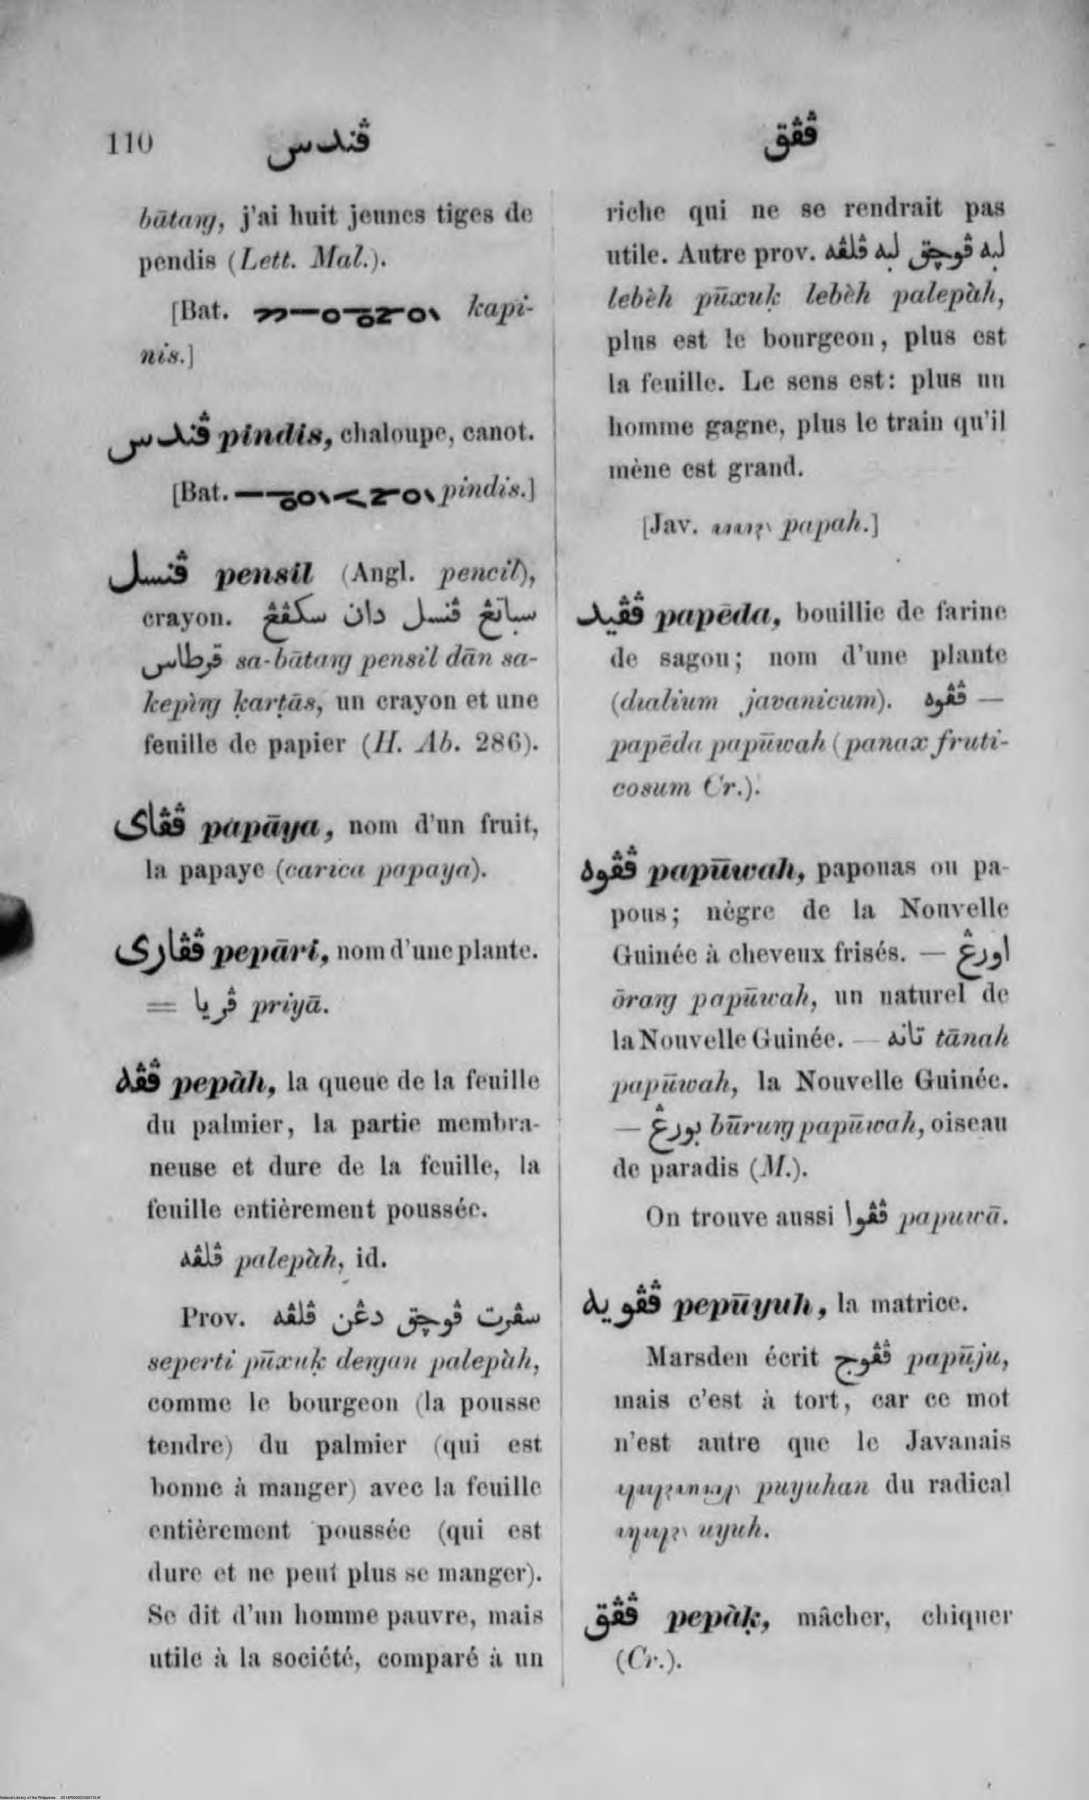 110 ڤندس ڤڤق
bātaŋ, j'ai huit jeunes tiges de
pendis (Lett. Mal.).
[Bat. kapi-
nis.]
ڤندس pindis, chaloupe, canot.
[Bat. pindis.]
ڤنسل pensil (Angl. pencil),
crayon. سباتڠ ڤنسل دان سکڤڠ
قرطاس sa-bātaŋ pensil dān sa-
kepìŋ ḳarṭās, un crayon et une
feuille de papier (H. Ab. 286).
ڤڤاى papāya, nom d'un fruit,
la papaye (carica papaya).
ڤڤارى pepāri, nom d'une plante.
= ڤريا priyā.
ڤڤه pepàh, la queue de la feuille
du palmier, la partie membra-
neuse et dure de la feuille, la
feuille entièrement poussée.
ڤلڤه palepàh, id.
Prov. سڤرت ڤوچق دڠن ڤلڤه
seperti pūxuḳ deŋan palepàh,
comme le bourgeon (la pousse
tendre) du palmier (qui est
bonne à manger) avec la feuille
entièrement poussée (qui est
dure et ne peut plus se manger).
Se dit d'un homme pauvre, mais
utile à la société, comparé à un
riche qui ne se rendrait pas
utile. Autre prov. لبه ڤوچق لبه ڤلڤه
lebèh pūxuḳ lebèh palepàh,
plus est le bourgeon, plus est
la feuille. Le sens est: plus un
homme gagne, plus le train qu'il
mène est grand.
[Jav. papah.]
ڤڤيد papēda, bouillie de farine
de sagou; nom d'une plante
(dialium javanicum). ڤڤوه —
papēda papūwah (panax fruti-
cosum Cr.).
ڤڤوه papūwah, papouas ou pa-
pous; nègre de la Nouvelle
Guinée à cheveux frisés. — اورڠ
ōraŋ papūwah, un naturel de
la Nouvelle Guinée. — تانه tānah
papūwah, la Nouvelle Guinée.
— بورڠ būruŋ papūwah, oiseau
de paradis (M.).
On trouve aussi ڤڤوا papuwā.
ڤڤويه pepūyuh, la matrice.
Marsden écrit ڤڤوج papūju,
mais c'est à tort, car ce mot
n'est autre que le Javanais
puyuhan du radical
uyuh.
ڤڤق pepàḳ, mâcher, chiquer
(Cr.).